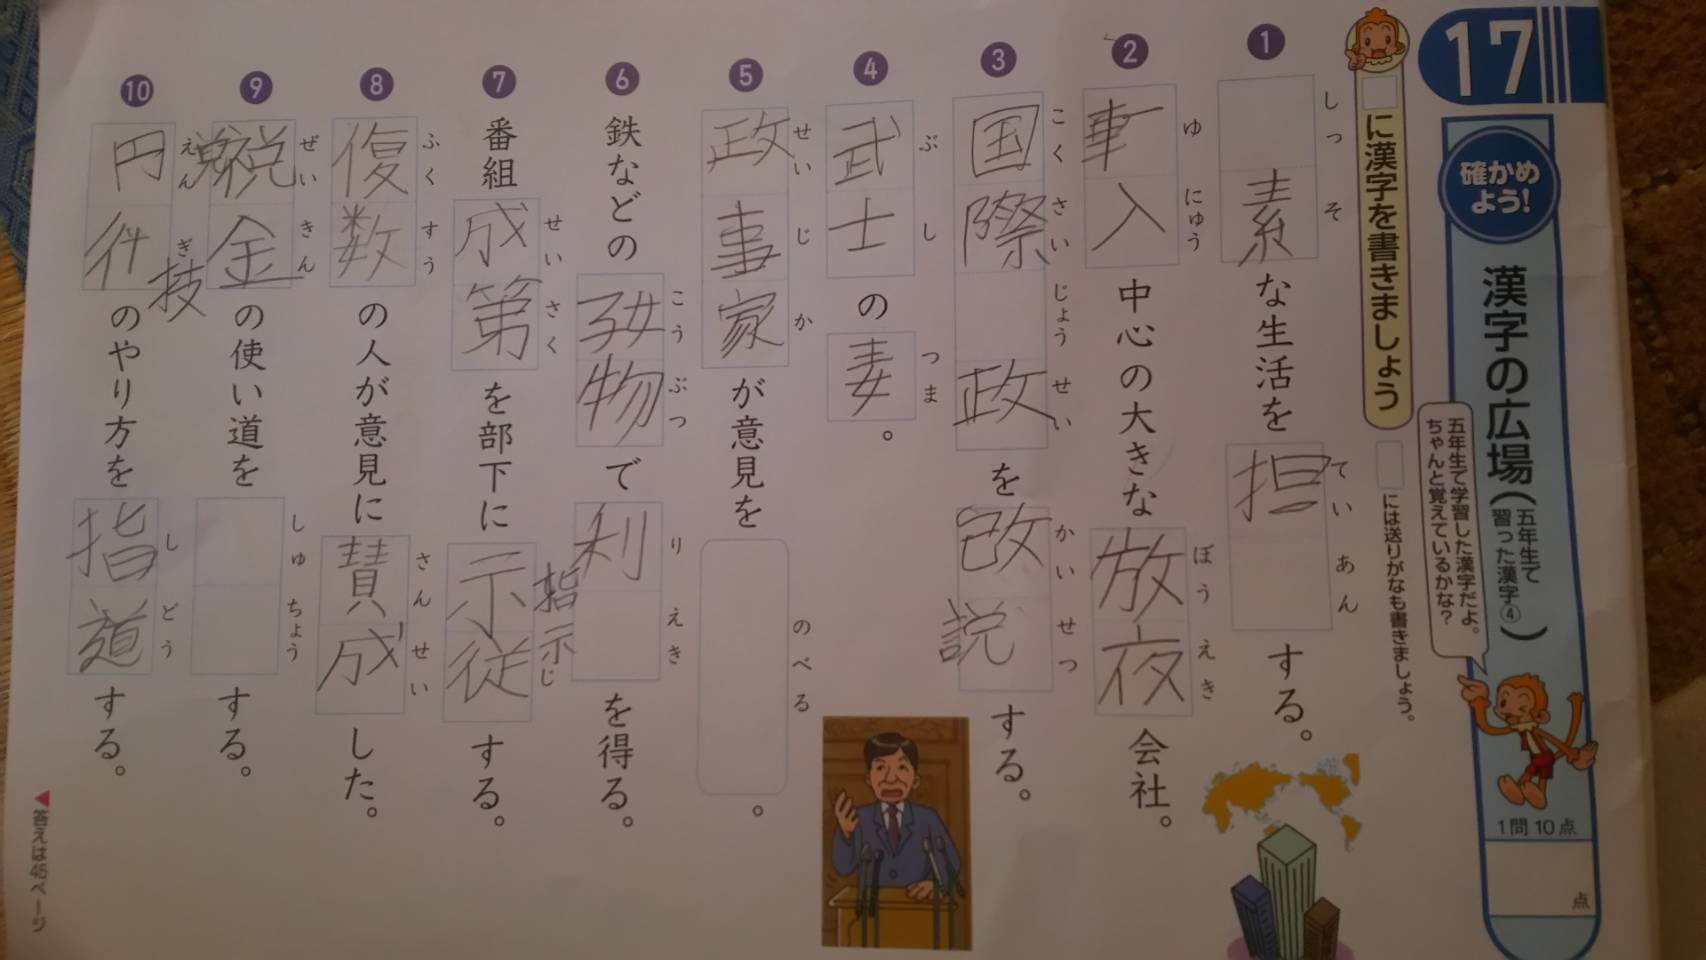 17
確かめよう!
漢字の広場(五年生で習った漢字④)
五年生で学習した漢字だよ。
ちゃんと覚えているかな?
1問10点
点
□に漢字を書きましょう
□には送りがなも書きましょう。
1 素な生活を担する。
しっ そ てい あん
2 入中心の大きな放夜会社。
ゆ にゅう ぼう えき
3 国際政を改説する。
こく さい じょう せい かい せつ
4 武士の妻。
ぶ し つま
5 政事家が意見を。
せい じ か のべる
6 鉄などの物で利を得る。
こう ぶつ り えき
7 番組成第を部下に示従する。
せい さく 指示 じ
8 復数の人が意見に賛成した。
ふく すう さん せい
9 税金の使い道をする。
ぜい きん し ゅ ちょう
10 円件のやり方を指道する。
えん ぎ 技 し どう
答えは45ページ